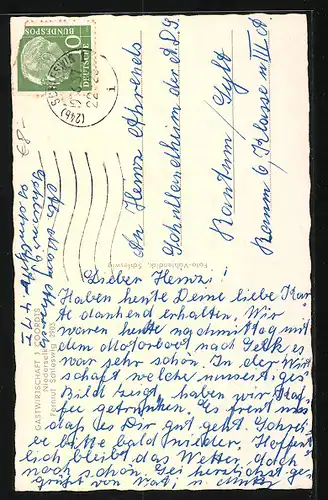 10
DEUTSCHE BUNDESPOST
SCHLESWIG
(24b)
i
An Heinz Ahrends
Schullandheim der A.L.S.
Rantum/Sylt
Kamm 6, Klasse
Foto-Vahlendick, Schleswig
GASTWIRTSCHAFT J. COORDTS
Niederselk
Fernruf Schleswig 2185
Lieber Heinz!
Haben heute Deine liebe Kar-
te dankend erhalten. Wir
waren heute nachmittag mit
dem Motorboot nach Selk es
war sehr schön. In der Wirt
schaft welche unserseitiges
Bild zeigt haben wir Kaf-
fee getrunken. Es freut uns
daß es Dir gut geht. Schrei-
be bitte bald wieder. Hoffent
lich bleibt das Wetter doch
noch schön. Sei herzlichst ge
grüßt von Vati u. Mutti